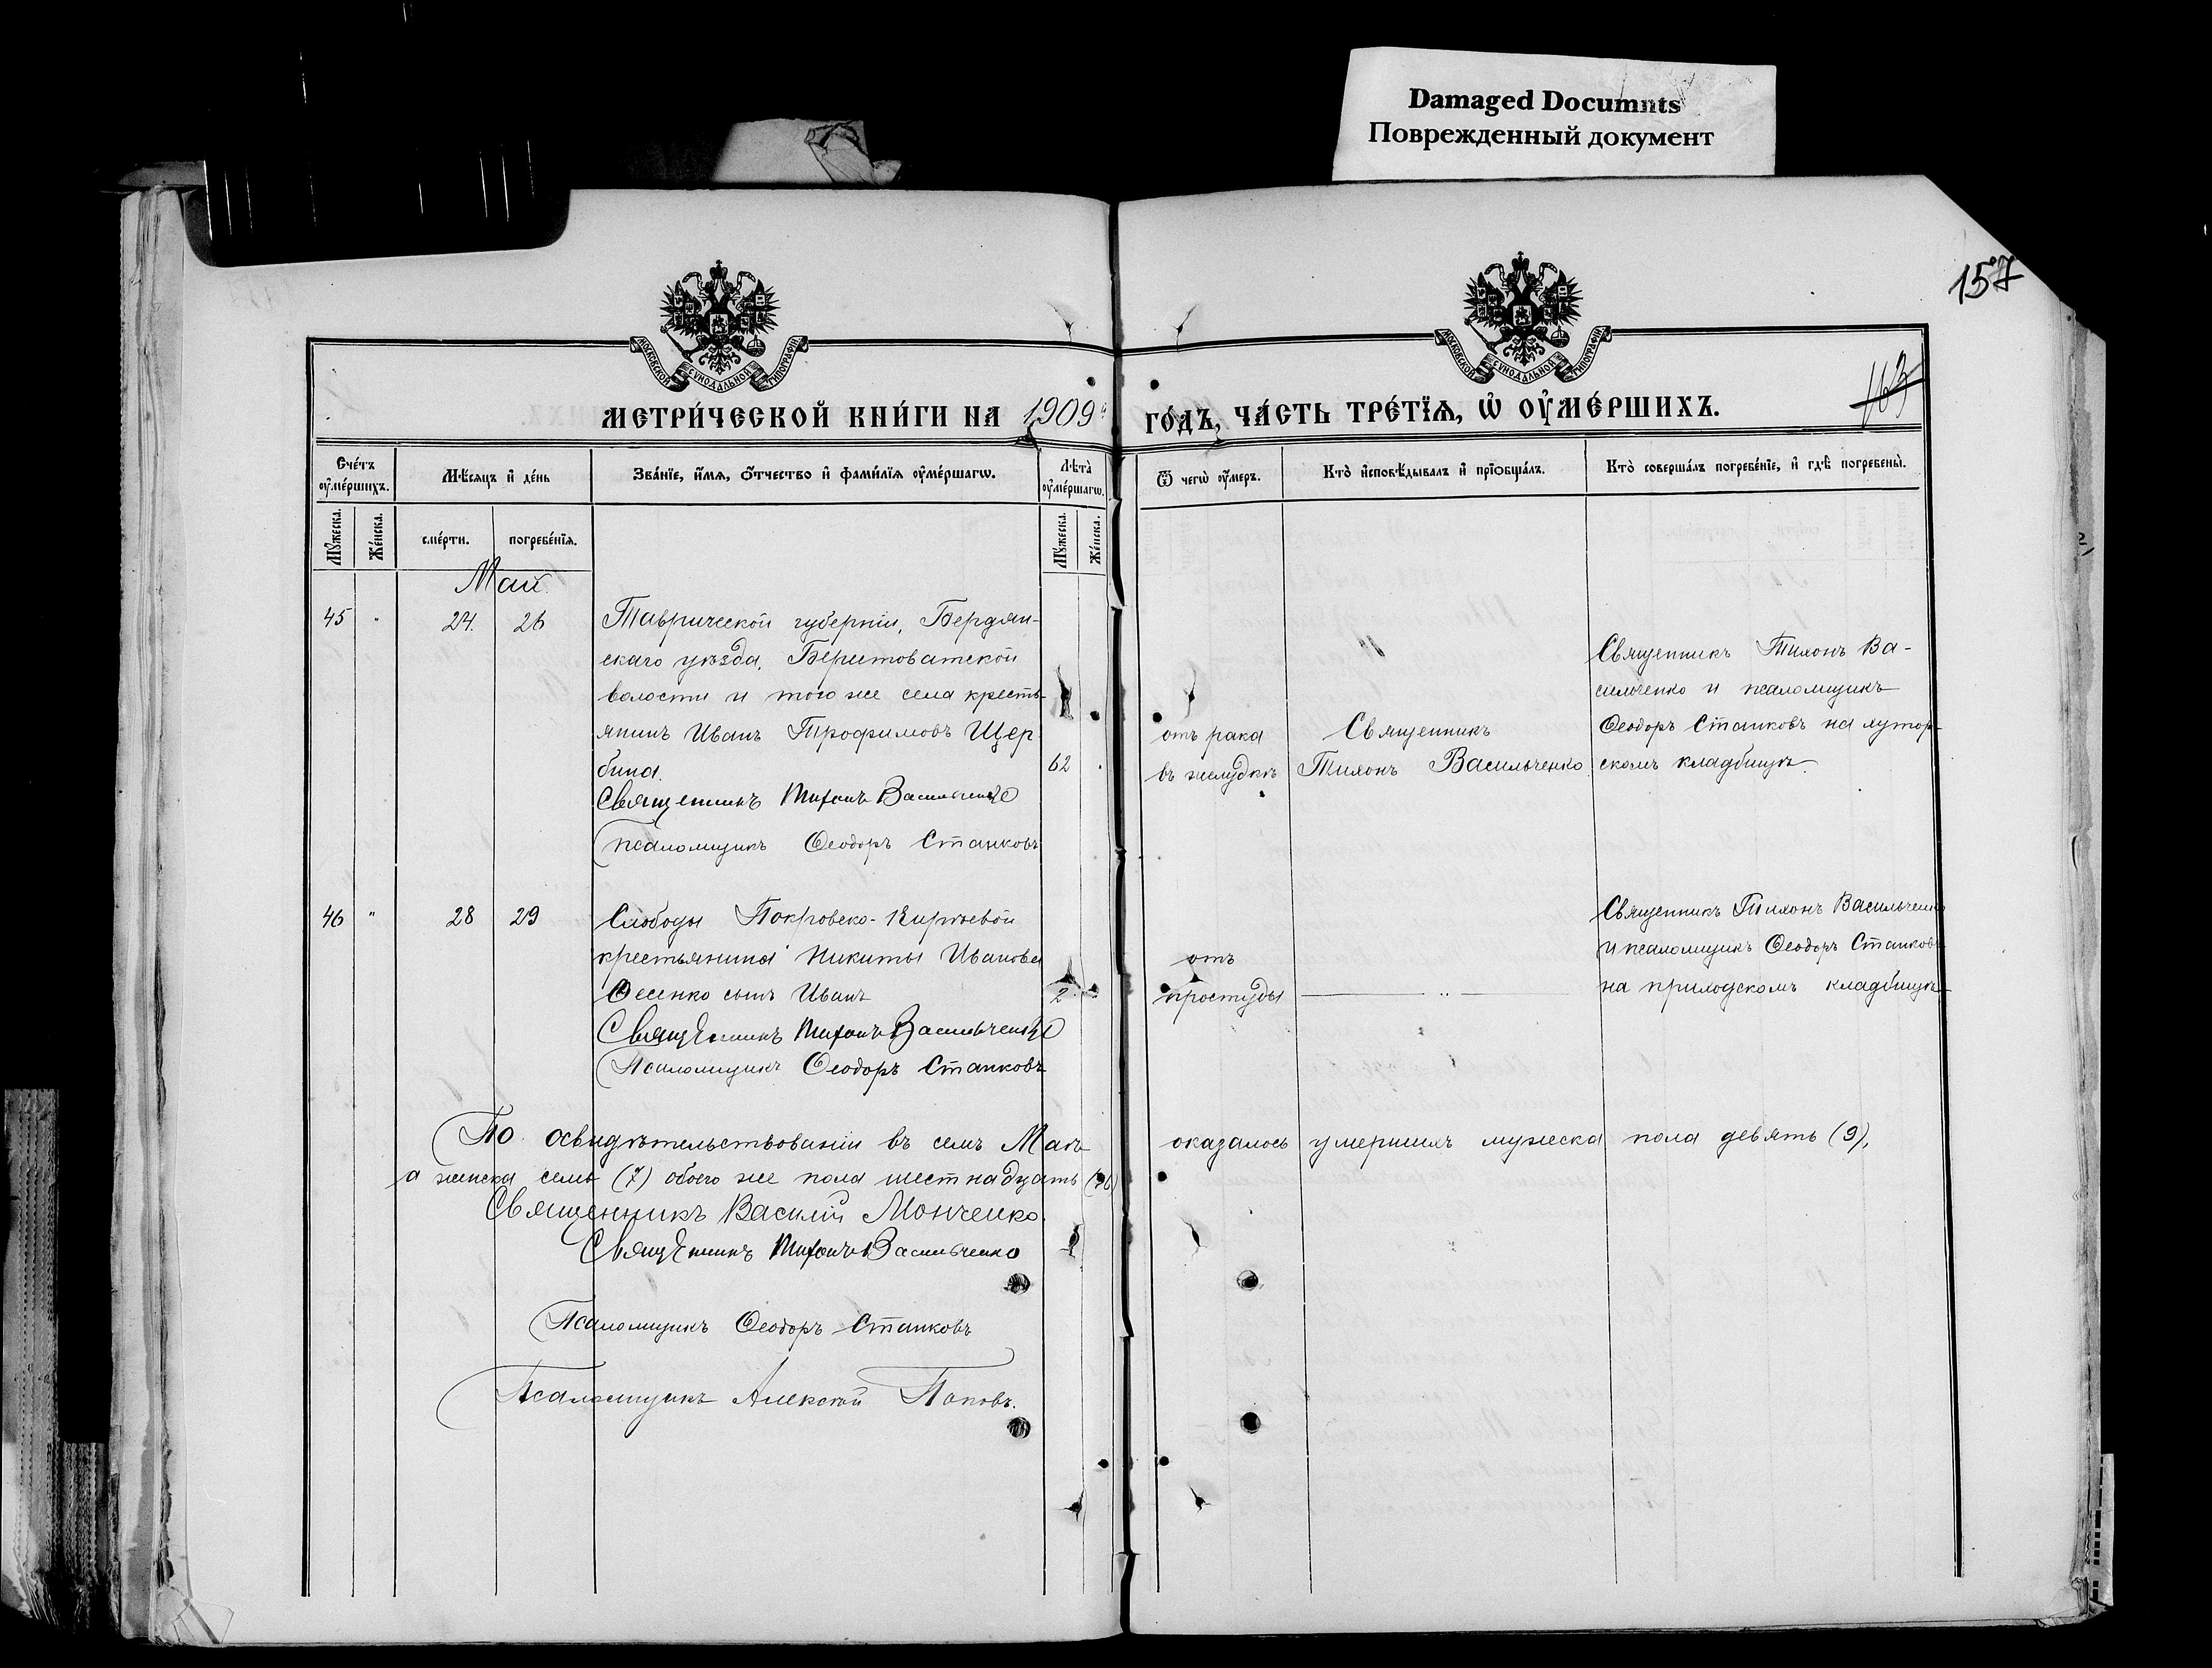 Damaged Documnts
Поврежденный документ
157
163
МОСКОВСКОЙ СѴНОДАЛЬНОЙ ТИПОГРАФІИ
МОСКОВСКОЙ СѴНОДАЛЬНОЙ ТИПОГРАФІИ
МЕТРИ́ЧЕСКОЙ КНИ́ГИ НА 1909 ГО́ДЪ, ЧА́СТЬ ТРЕ́ТІѦ, Ѡ҆ ОУ҆МЕ́РШИХЪ.
Сче́тъ оу҆ме́ршихъ.
Мѣ́сяцъ и҆ де́нь
Зва́нїе, и҆́мѧ, ѻ҆́тчество и҆ фами́лїѧ оу҆ме́ршагѡ.
Лѣ́та̀ оу҆ме́ршагѡ.
Ѿ чегѡ̀ оу҆́меръ.
Кто̀ и҆сповѣ́дывалъ и҆ прїѡбща́лъ.
Кто̀ соверша́лъ погребе́нїе, и҆ гдѣ̀ погребены̀.
Мꙋ́жеска. Же́нска. сме́рти. погребе́нїѧ. Мꙋ́жеска. Же́нска.
Май
45 " 24. 26 Таврической губерніи, Бердян-
скаго уѣзда, Берестоватской
волости и того же села кресть-
янинъ Иванъ Трофимовъ Щер
бина.
62
Священникъ Тихонъ Васильченко
Псаломщикъ Ѳеодоръ Станковъ
отъ рака
въ желудкѣ
Священникъ
Тихонъ Васильченко
Священникъ Тихонъ Ва-
сильченко и псаломщикъ
Ѳеодоръ Станковъ на хутор-
скомъ кладбищѣ.
46 " 28 29 Слободы Покровско-Кирѣевой
крестьянина Никиты Иванова
Ѳесенко сынъ Иванъ
2
Священникъ Тихонъ Васильченко
Псаломщикъ Ѳеодоръ Станковъ
отъ
простуды
— " —
Священникъ Тихонъ Васильченко
и псаломщикъ Ѳеодоръ Станковъ
на приходскомъ кладбищѣ
По освидѣтельствованіи въ семъ Маѣ оказалось умершихъ мужеска пола девять (9),
а женска семь (7) обоего же пола шестнадцать (16)
Священникъ Василій Монченко.
Священникъ Тихонъ Васильченко
Псаломщикъ Ѳеодоръ Станковъ
Псаломщикъ Алексѣй Поповъ.